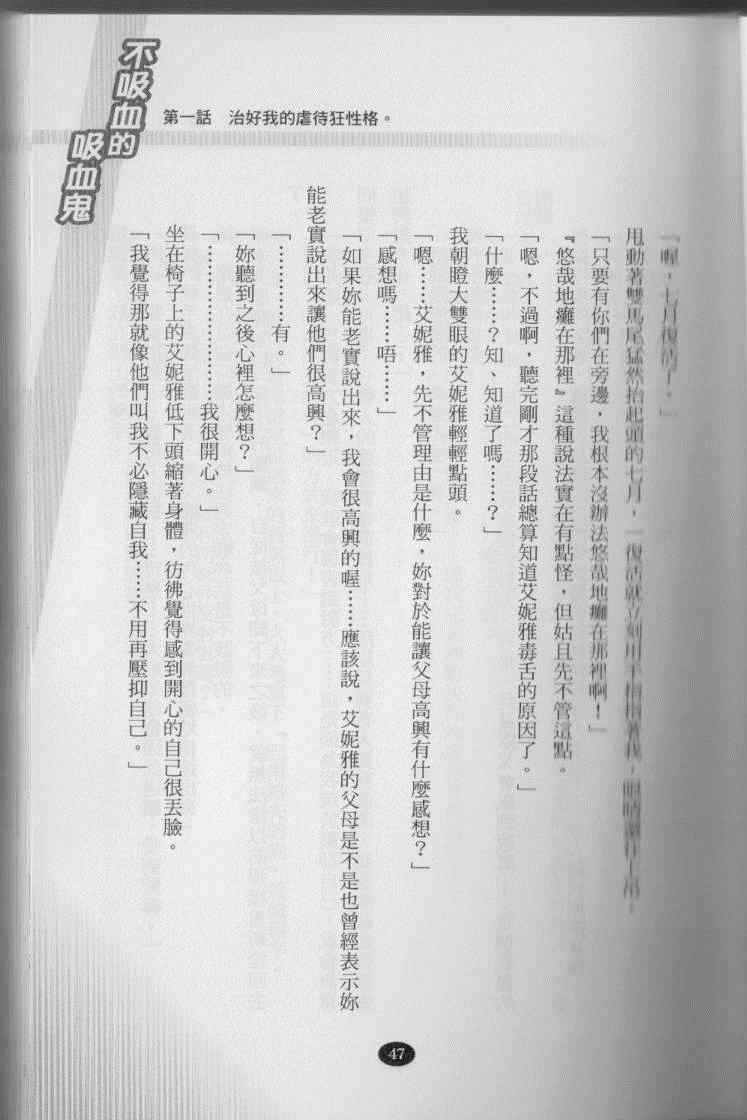 不吸血的
吸血鬼
第一話　治好我的虐待狂性格。
「喔，七月復活了。」
甩動著雙馬尾猛然抬起頭的七月，一復活就立刻用手指指著我，眼睛
「只要有你們在旁邊，我根本沒辦法悠哉地癱在那裡啊！」
『悠哉地癱在那裡』這種說法實在有點怪，但姑且先不管這點。
「嗯，不過啊，聽完剛才那段話總算知道艾妮雅毒舌的原因了。」
「什麼……？知、知道了嗎……？」
我朝瞪大雙眼的艾妮雅輕輕點頭。
「嗯……艾妮雅，先不管理由是什麼，妳對於能讓父母高興有什麼感想？」
「感想嗎……唔……」
「如果妳能老實說出來，我會很高興的喔……應該說，艾妮雅的父母是不是也曾經表示妳
能老實說出來讓他們很高興？」
「…………有。」
「妳聽到之後心裡怎麼想？」
「……………………我很開心。」
坐在椅子上的艾妮雅低下頭縮著身體，彷彿覺得感到開心的自己很丟臉。
「我覺得那就像他們叫我不必隱藏自我……不用再壓抑自己。」
47